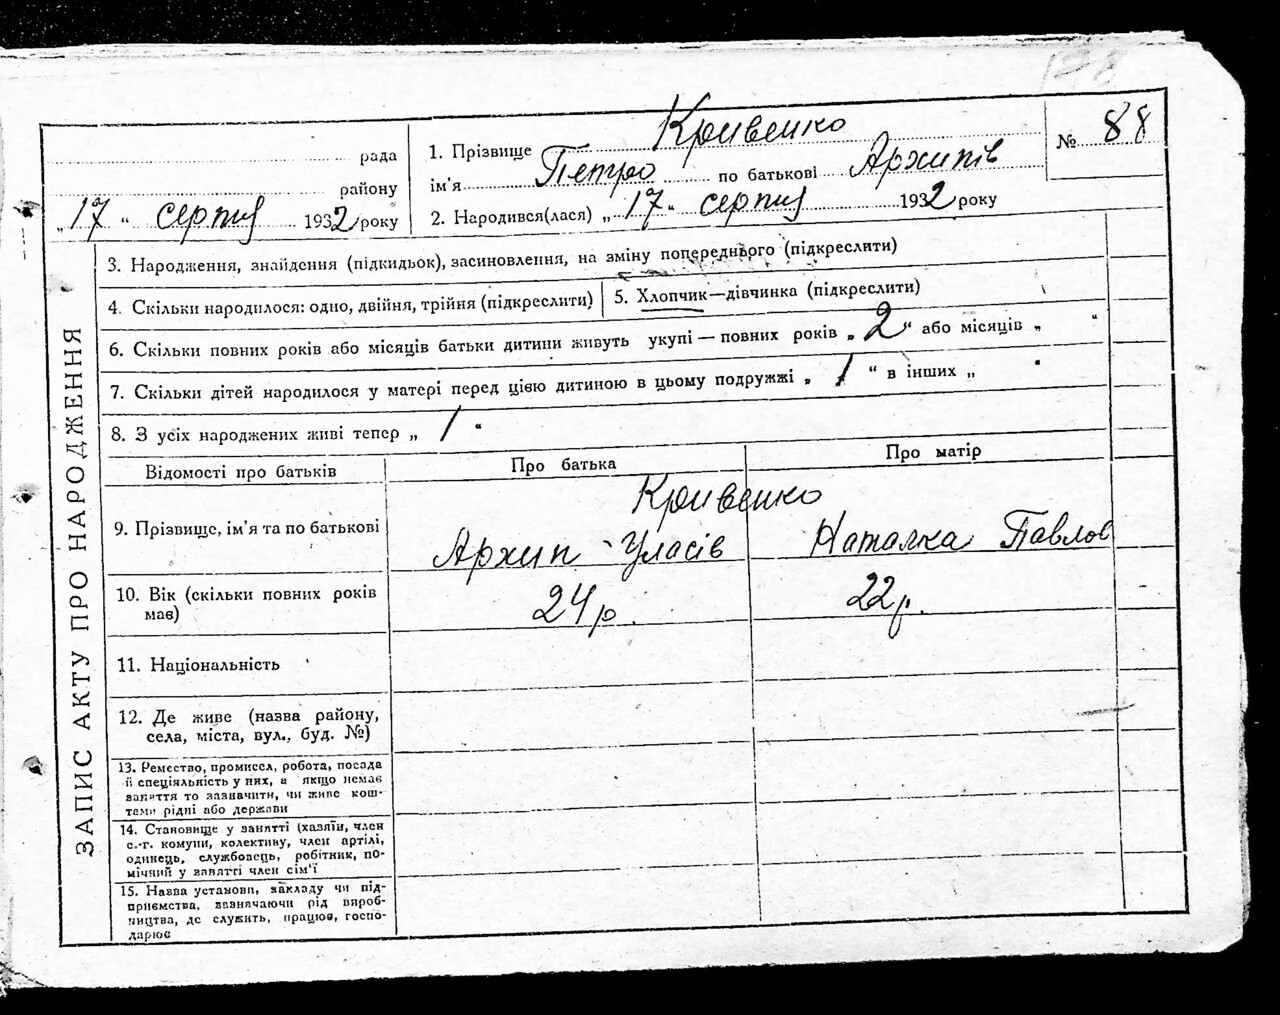 рада
району
„17" серпня 1932 року
1. Прізвище Кривенко
ім'я Петро по батькові Архипів
2. Народився(лася) „17" серпня 1932 року
№ 88
ЗАПИС АКТУ ПРО НАРОДЖЕННЯ
3. Народження, знайдення (підкидьок), засиновлення, на зміну попереднього (підкреслити)
4. Скільки народилося: одно, двійня, трійня (підкреслити)
5. Хлопчик—дівчинка (підкреслити)
6. Скільки повних років або місяців батьки дитини живуть укупі — повних років „2" або місяців „ "
7. Скільки дітей народилося у матері перед цією дитиною в цьому подружжі „1" в інших „ "
8. З усіх народжених живі тепер „1"
Відомості про батьків
Про батька
Про матір
9. Прізвище, ім'я та по батькові
Кривенко
Архип Уласів
Наталка Павлов
10. Вік (скільки повних років
має)
24 р.
22 р.
11. Національність
12. Де живе (назва району,
села, міста, вул., буд. №)
13. Ремество, промисел, робота, посада
й спеціяльність у них, а якщо немає
заняття то зазначити, чи живе кош-
тами рідні або держави
14. Становище у занятті (хазяїн, член
с.-г. комуни, колективу, член артілі,
одинець, службовець, робітник, по-
мічний у занятті член сім'ї
15. Назва установи, закладу чи під-
приємства, зазначаючи рід вироб-
ництва, де служить, працює, госпо-
дарює